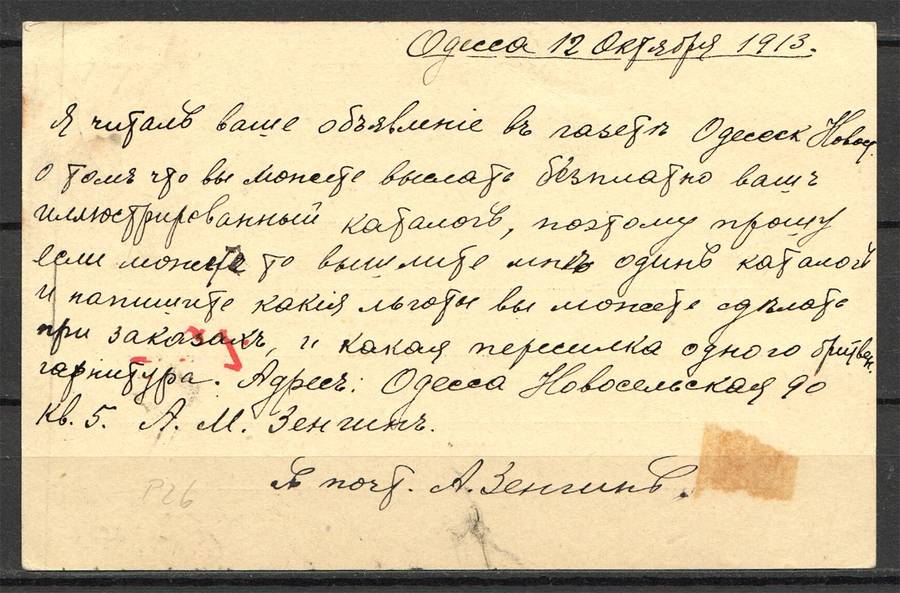 Одесса 12 Октября 1913.
Я читалъ ваше объявленіе въ газетѣ Одесск Новос.
о томъ что вы можете выслать безплатно вашъ
иллюстрированный каталогъ, поэтому прошу
если можете то вышлите мнѣ одинъ каталогъ
и напишите какія льготы вы можете сдѣлать
при заказахъ, и какая пересилка одного бритвен.
гарнитура. Адресъ: Одесса Новосельская 90
кв. 5. А. М. Зенгинъ.
почт. А. Зенгинъ.
P26